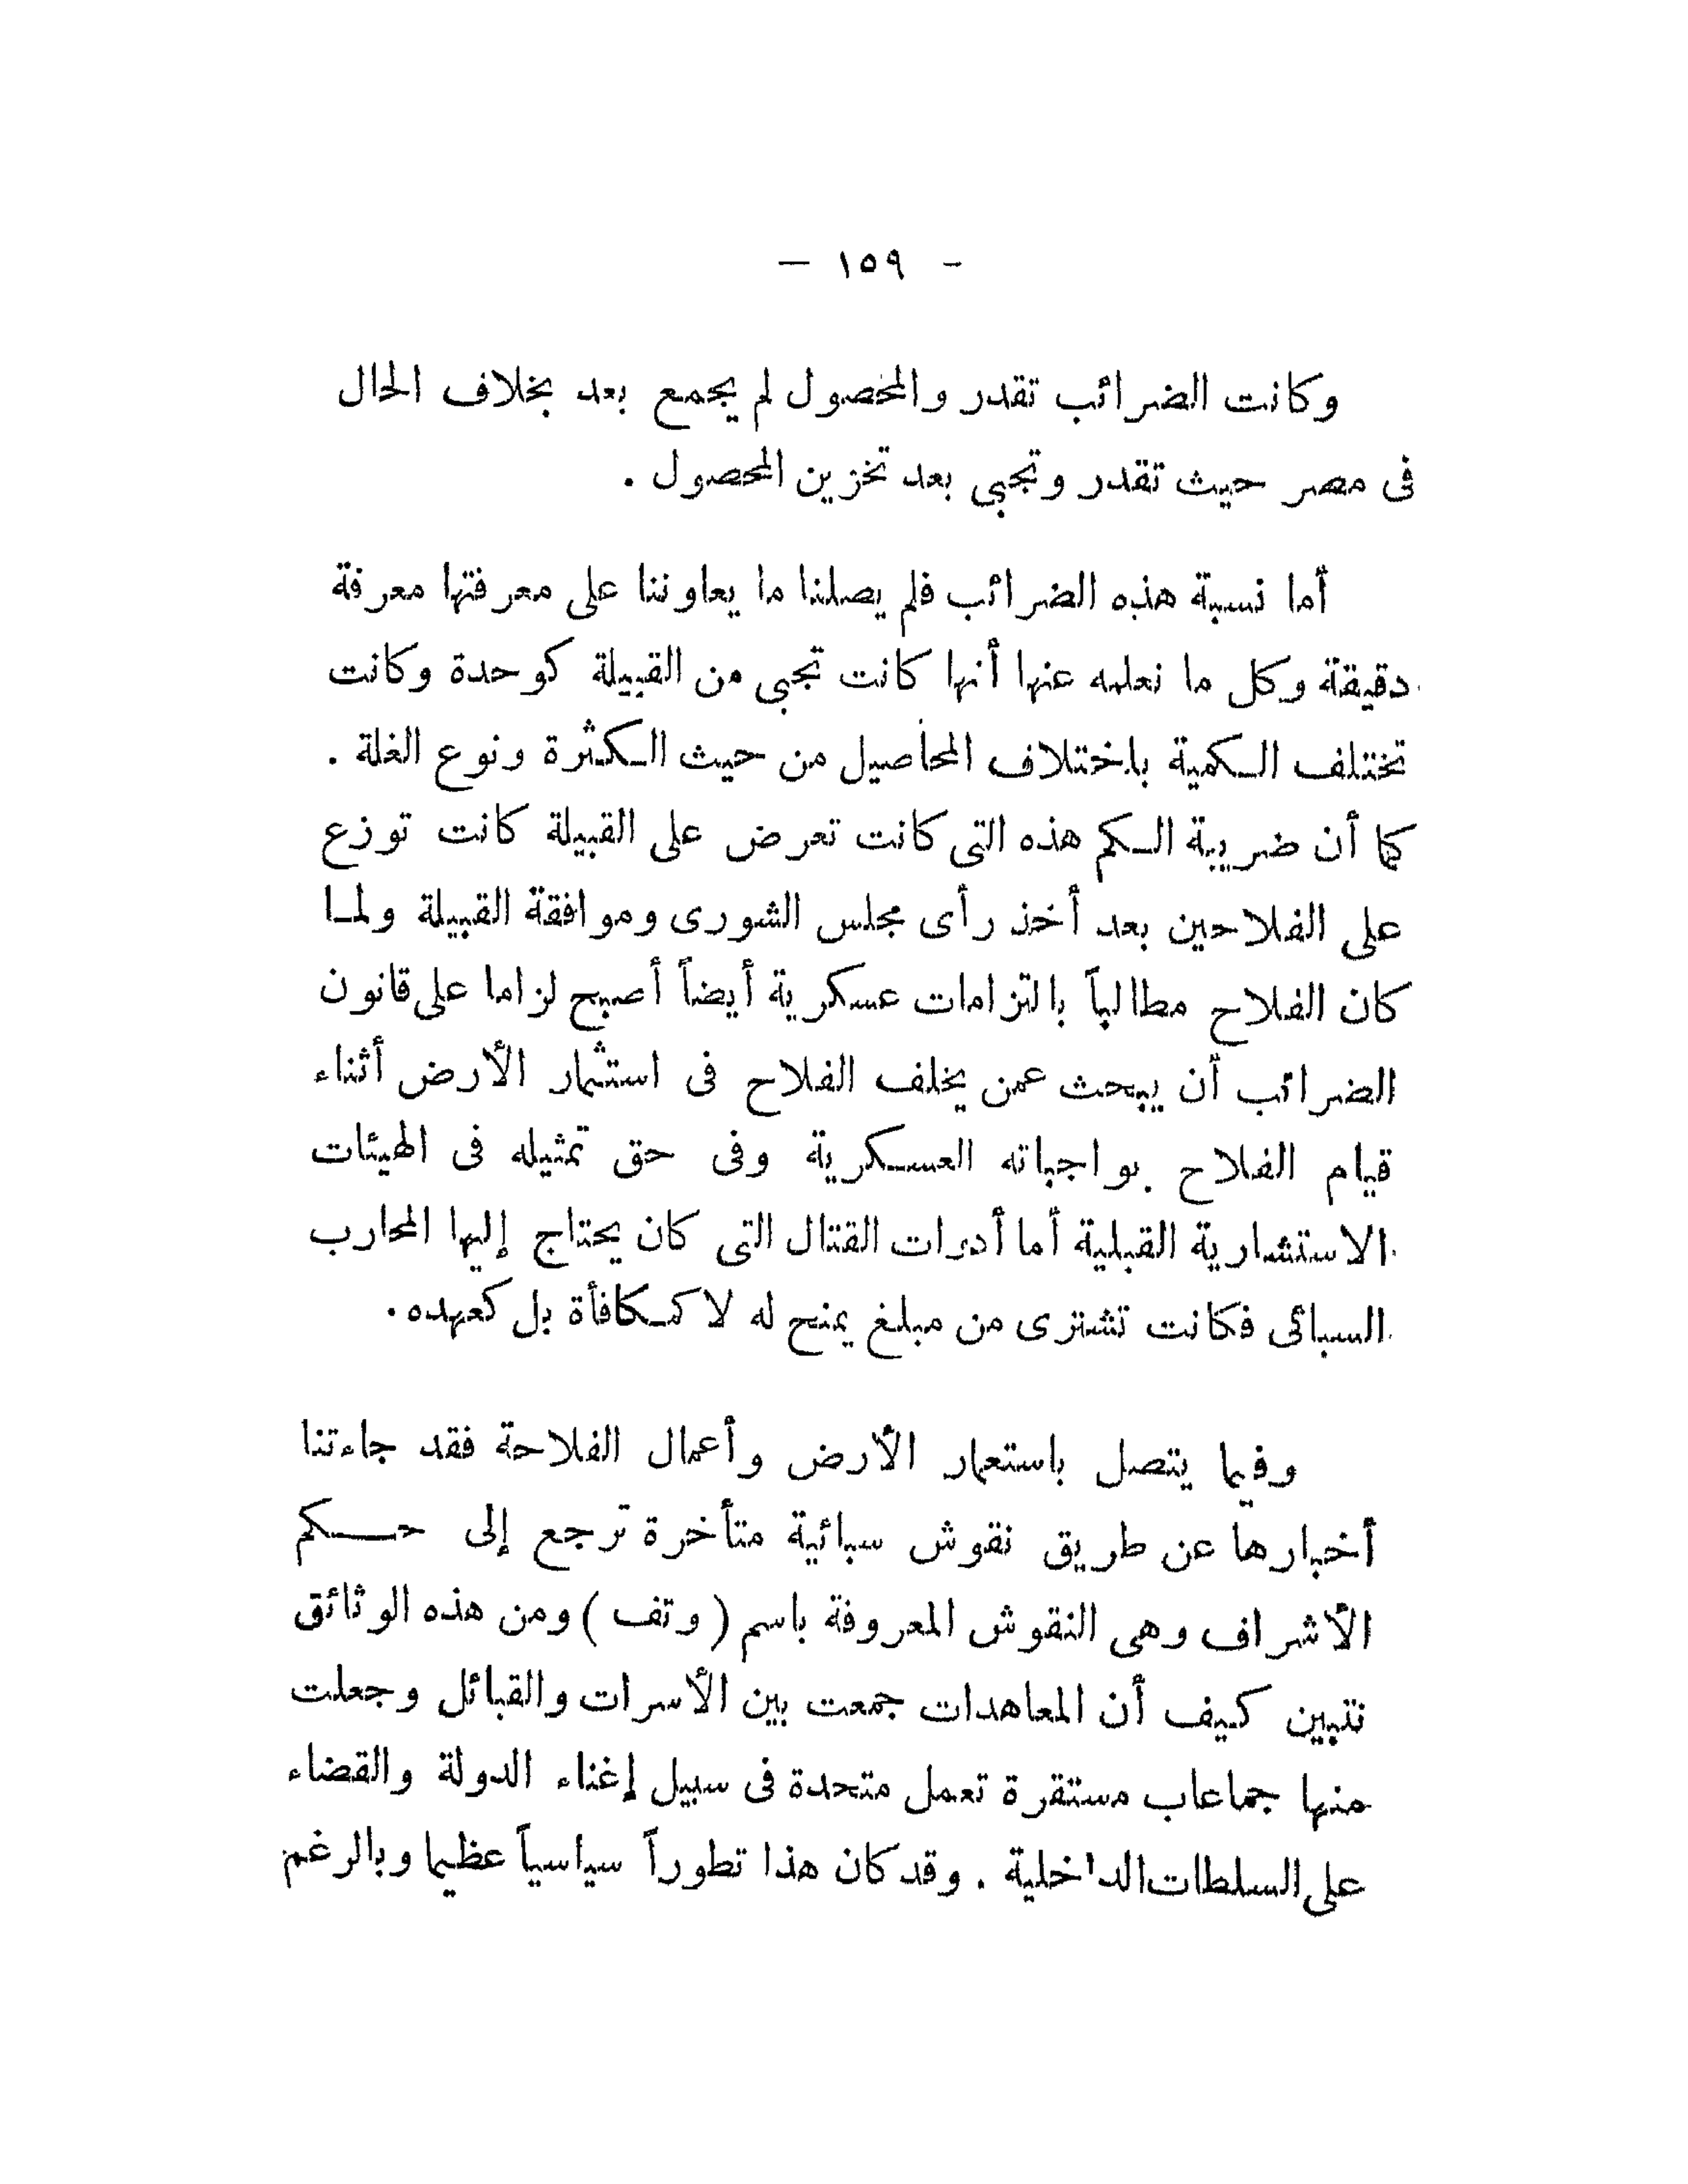 — ١٥٩ —
وكانت الضرائب تقدر والمحصول لم يجمع بعد بخلاف الحال
فى مصر حيث تقدر وتجبى بعد تخزين المحصول .
أما نسبة هذه الضرائب فلم يصلنا ما يعاوننا على معرفتها معرفة
دقيقة وكل ما نعلمه عنها أنها كانت تجبى من القبيلة كوحدة وكانت
تختلف الكمية باختلاف المحاصيل من حيث الكثرة ونوع الغلة .
كما أن ضريبة الكم هذه التى كانت تعرض على القبيلة كانت توزع
على الفلاحين بعد أخذ رأى مجلس الشورى وموافقة القبيلة ولما
كان الفلاح مطالباً بالتزامات عسكرية أيضاً أصبح لزاما على قانون
الضرائب أن يبحث عمن يخلف الفلاح فى استثمار الأرض أثناء
قيام الفلاح بواجباته العسكرية وفى حق تمثيله فى الهيئات
الاستشارية القبلية أما أدرات القتال التى كان يحتاج إليها المحارب
السبائى فكانت تشترى من مبلغ يمنح له لا كمكافأة بل كعهده .
وفيما يتصل باستعمار الأرض وأعمال الفلاحة فقد جاءتنا
أخبارها عن طريق نقوش سبائية متأخرة ترجع إلى حكم
الأشراف وهى النقوش المعروفة باسم ( وتف ) ومن هذه الوثائق
نتبين كيف أن المعاهدات جمعت بين الأسرات والقبائل وجعلت
منها جماعاب مستقرة تعمل متحدة فى سبيل إغناء الدولة والقضاء
على السلطات الداخلية . وقد كان هذا تطوراً سياسياً عظيما وبالرغم